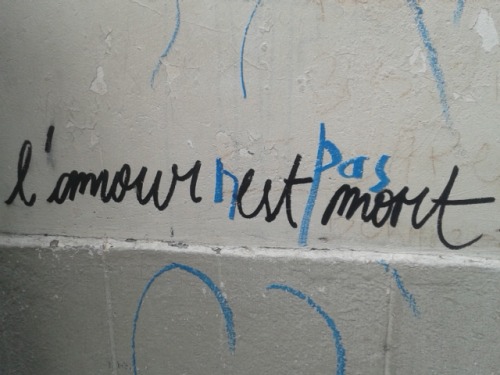 l'amour n'est pas mort